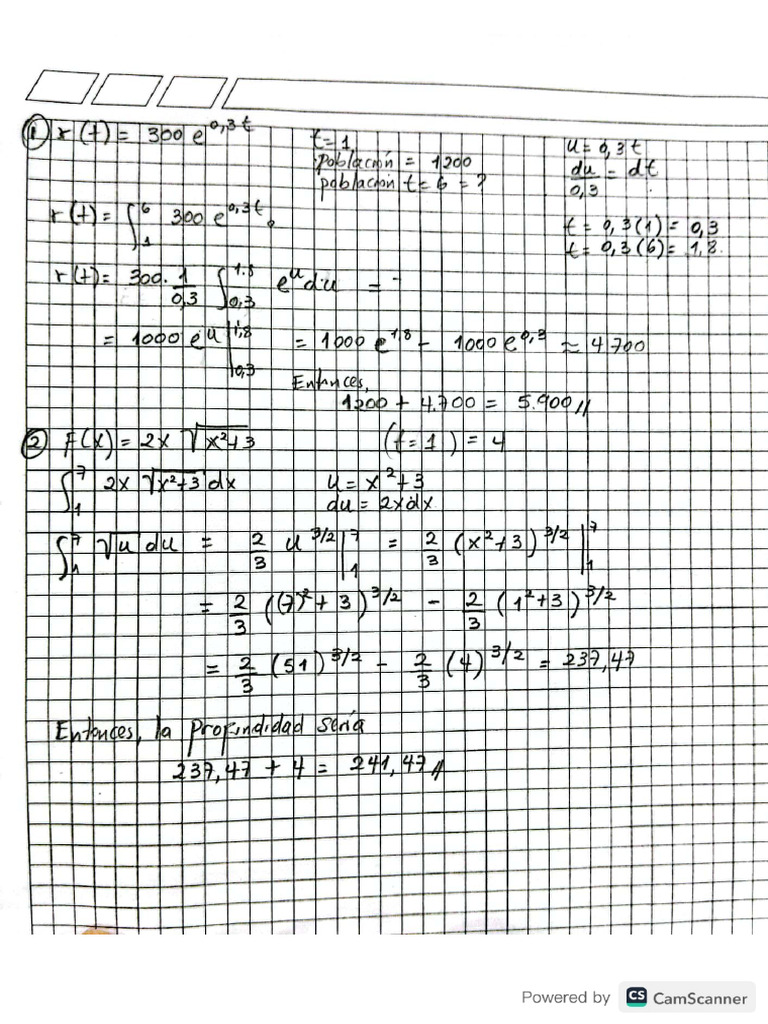 ① r(t) = 300 e^0,3t
t=1
Población = 1200
población t=6 = ?
u = 0,3t
du/0,3 = dt
r(t) = ∫₁⁶ 300 e^0,3t.
t = 0,3(1) = 0,3
t = 0,3(6) = 1,8.
r(t) = 300 · 1/0,3 ∫_0,3^1.8 e^u du =
= 1000 e^u |_0,3^1,8 = 1000 e^1,8 - 1000 e^0,3 ≈ 4.700
Entonces,
1200 + 4.700 = 5.900 //
② F(x) = 2x √(x²+3) (t=1) = 4
∫₁⁷ 2x √(x²+3) dx u = x²+3
du = 2xdx
∫₁⁷ √u du = 2/3 u^3/2 |₁⁷ = 2/3 (x²+3)^3/2 |₁⁷
= 2/3 ((7)²+3)^3/2 - 2/3 (1²+3)^3/2
= 2/3 (51)^3/2 - 2/3 (4)^3/2 = 237,47
Entonces, la profindidad sería
237,47 + 4 = 241,47 //
Powered by CS CamScanner